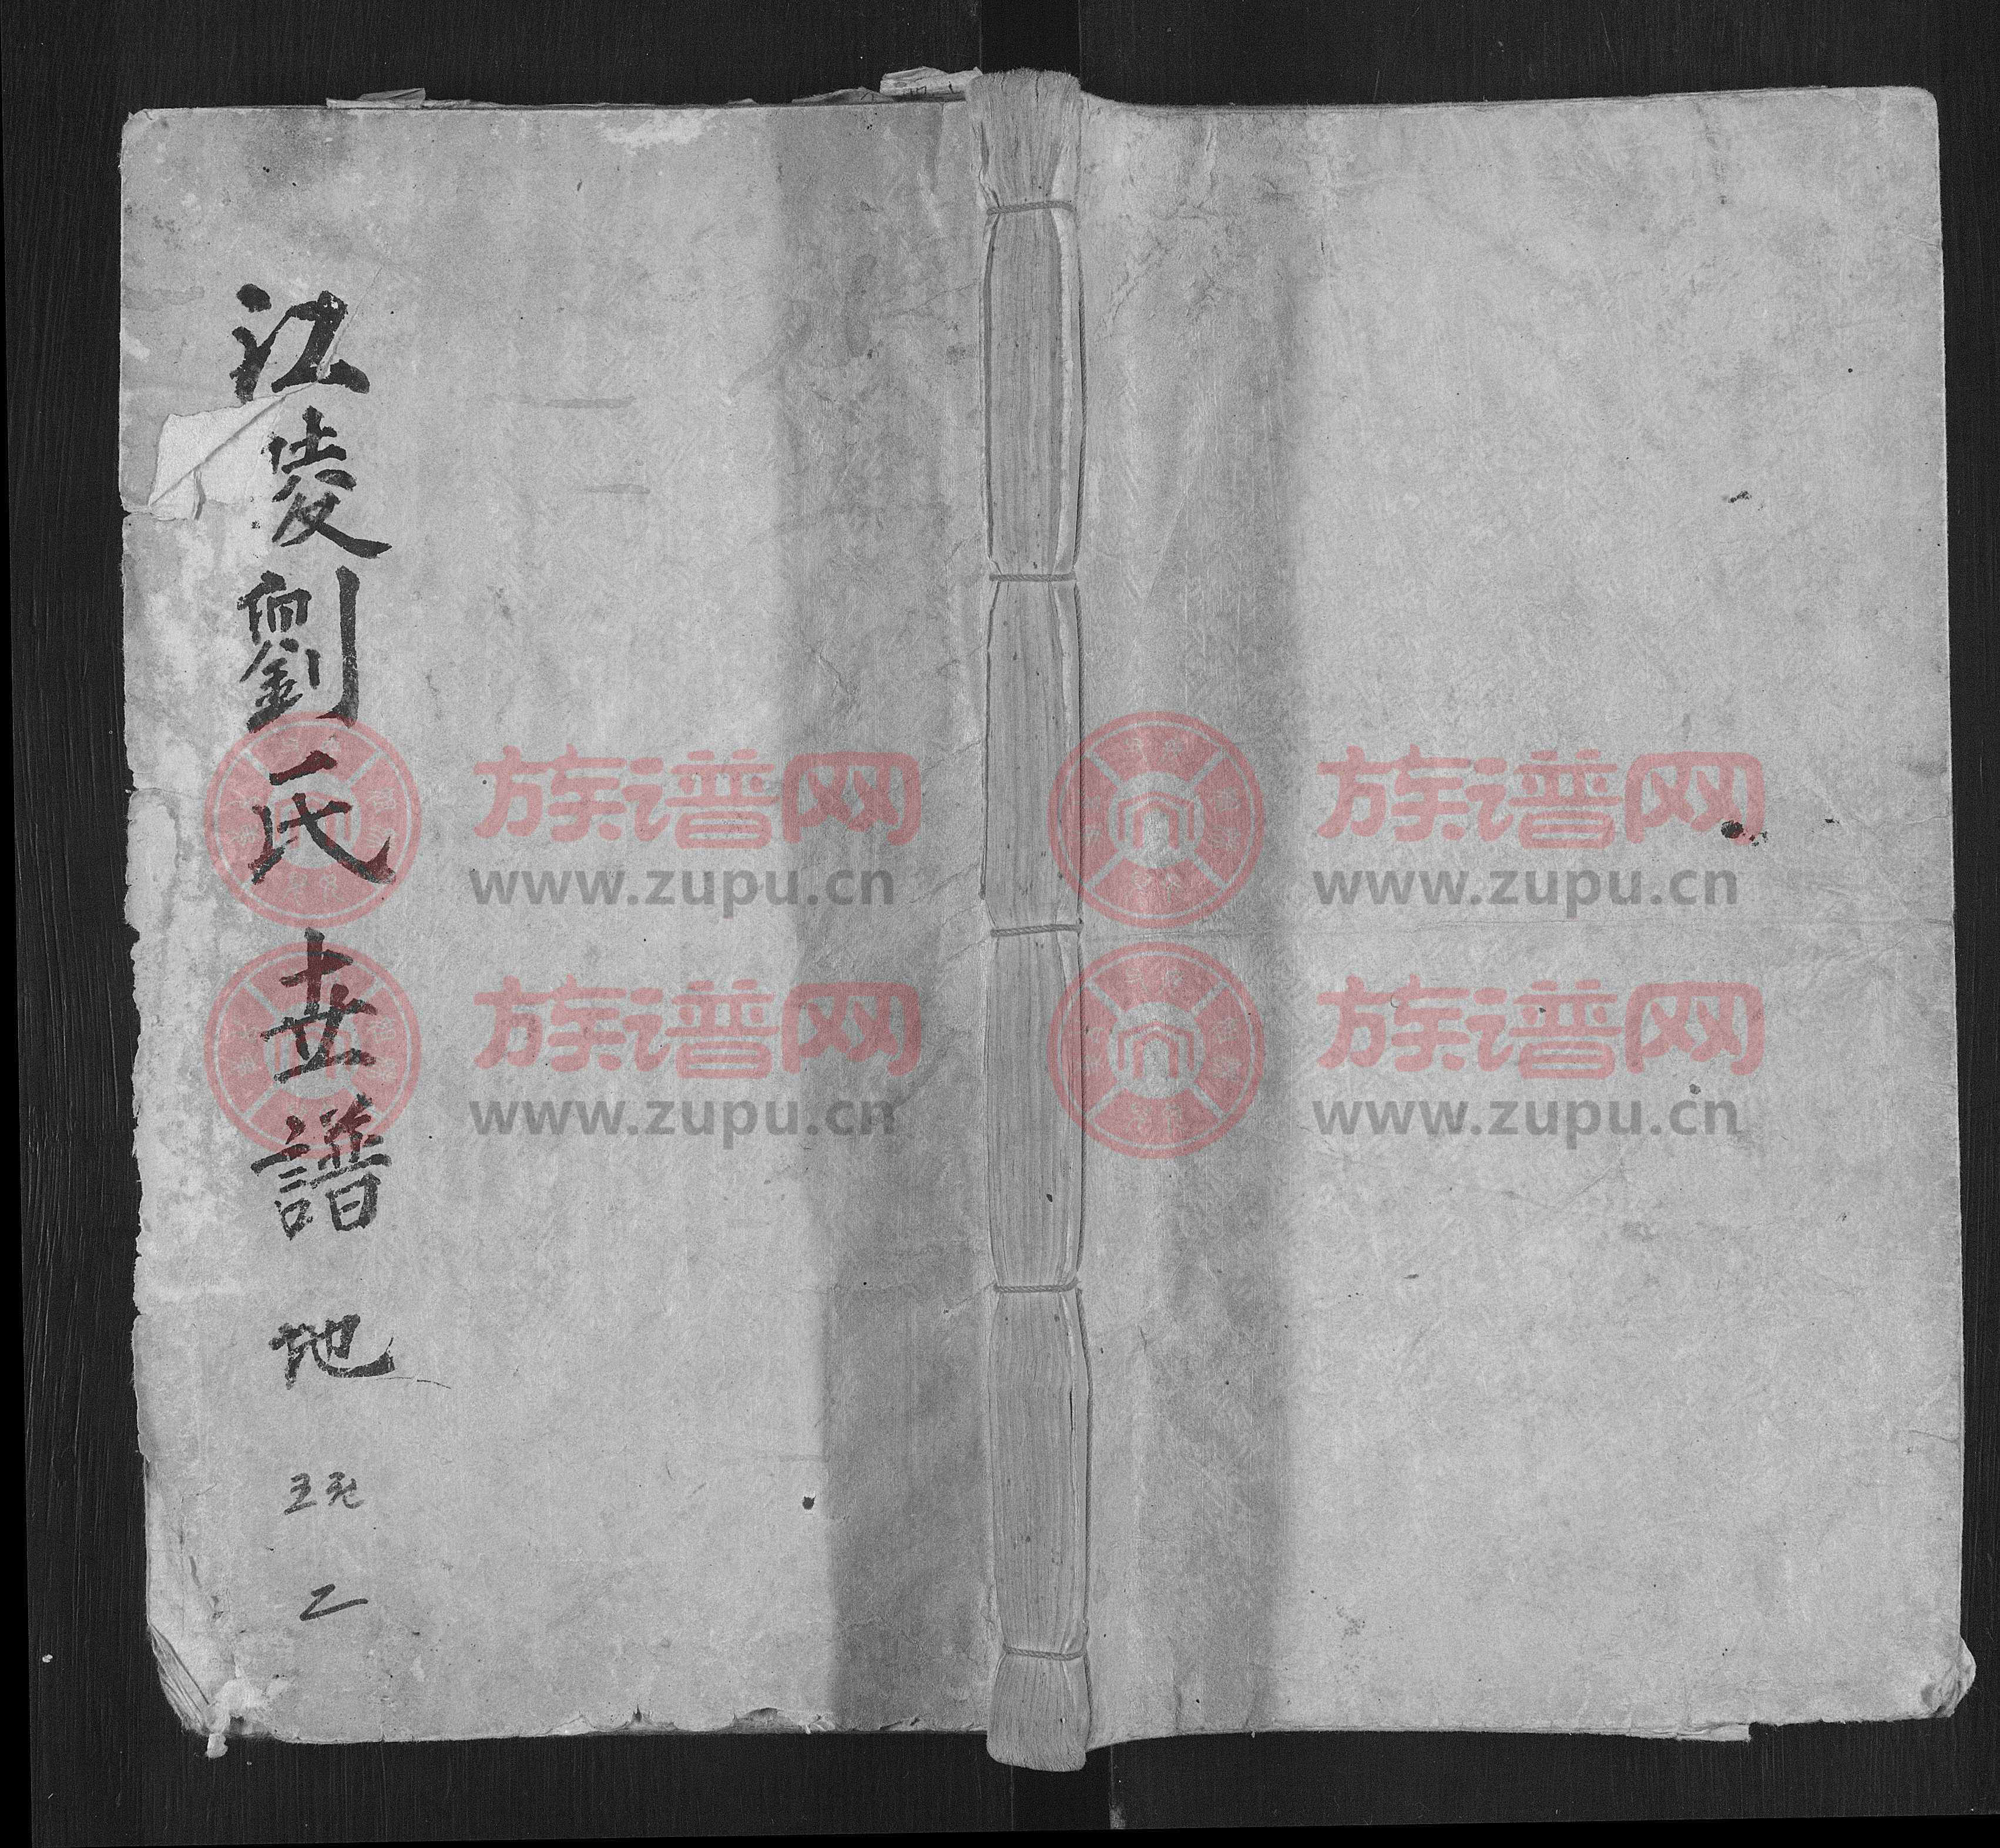 江陵劉氏世譜 地
乙
族谱网
www.zupu.cn
族谱网
www.zupu.cn
族谱网
www.zupu.cn
族谱网
www.zupu.cn